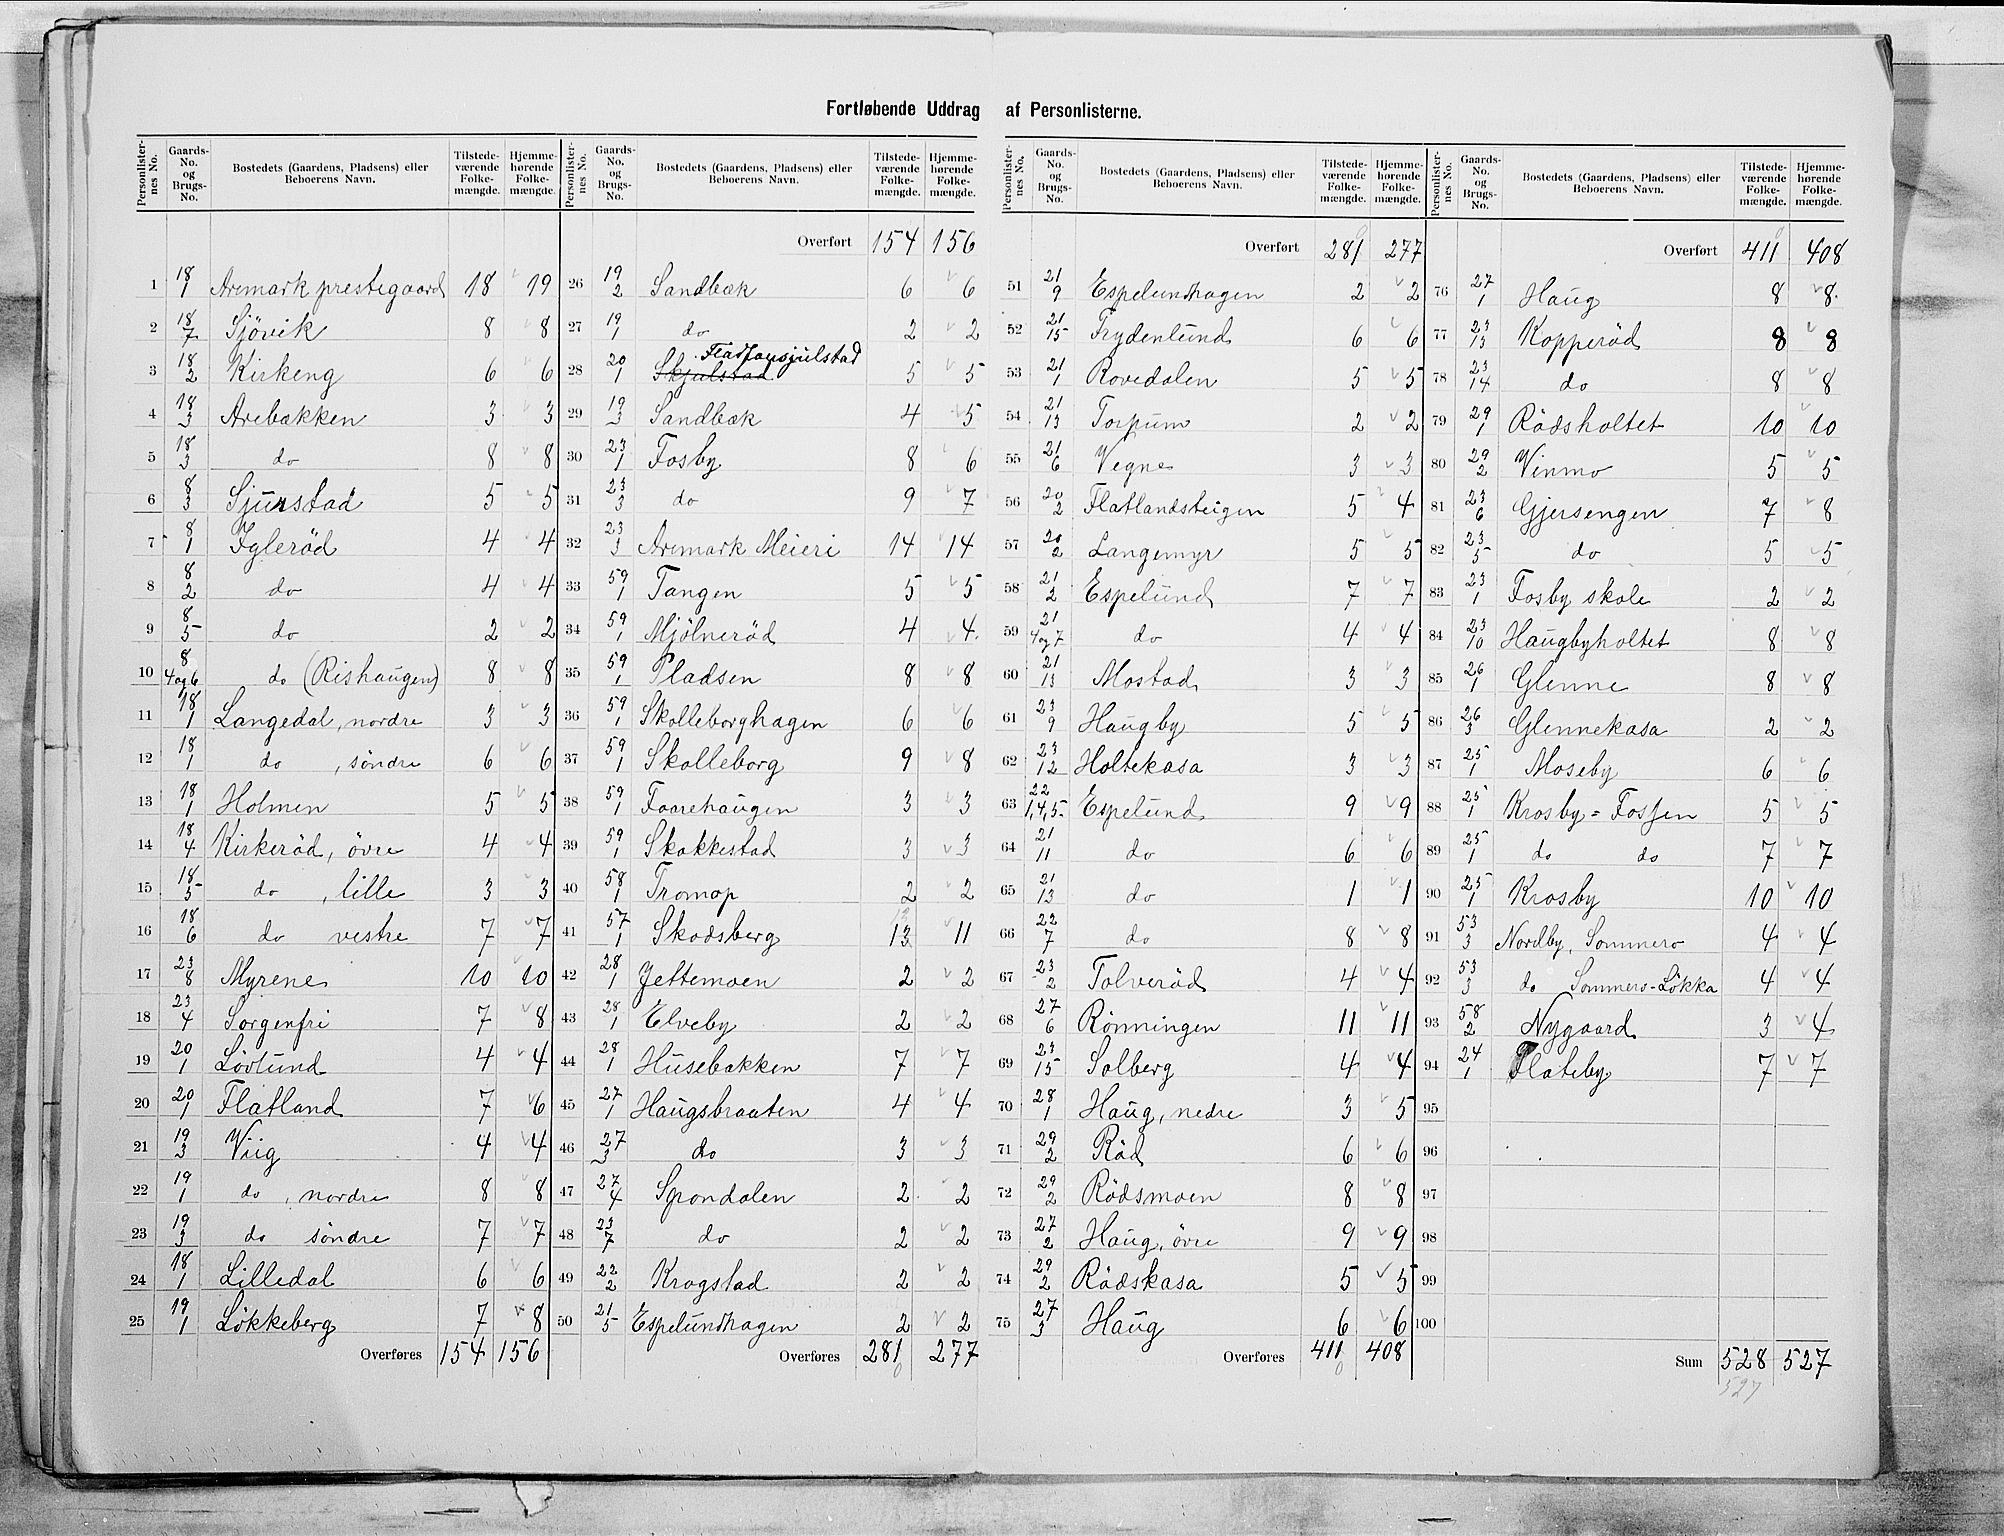 Fortløbende Uddrag af Personlisterne.
Personlisternes No. | Gaards-No. og Brugs-No. | Bostedets (Gaardens, Pladsens) eller Beboerens Navn. | Tilstedeværende Folkemængde. | Hjemmehørende Folkemængde.
1 18/1 Aremark prestegaard 18 19
2 18/7 Sjövik 8 8
3 18/2 Kirkeng 6 6
4 18/3 Arebakken 3 3
5 18/3 do 8 8
6 8/3 Sjurstad 5 5
7 8/1 Igleröd 4 4
8 8/2 do 4 4
9 8/5 do 2 2
10 8/4og6 do (Rishaugen) 8 8
11 18/1 Langedal, nordre 3 3
12 18/1 do , söndre 6 6
13 18/1 Holmen 5 5
14 18/4 Kirkeröd, övre 4 4
15 18/5 do , lille 3 3
16 18/6 do vestre 7 7
17 23/8 Myrene 10 10
18 23/4 Sorgenfri 7 8
19 20/1 Lövlund 4 4
20 20/1 Flatland 7 6
21 19/3 Viig 4 4
22 19/1 do , nordre 8 8
23 19/3 do söndre 7 7
24 18/1 Lilledal 6 6
25 19/1 Lökkeberg 7 8
Overføres 154 156
Personlisternes No. | Gaards-No. og Brugs-No. | Bostedets (Gaardens, Pladsens) eller Beboerens Navn. | Tilstedeværende Folkemængde. | Hjemmehørende Folkemængde.
Overført 154 156
26 19/2 Sandbæk 6 6
27 19/1 do 2 2
28 20/1 Skjulstad 5 5
29 19/3 Sandbæk 4 5
30 23/1 Fosby 8 6
31 23/3 do 9 7
32 23/3 Aremark Meieri 14 14
33 59/1 Tangen 5 5
34 59/1 Mjölneröd 4 4
35 59/1 Pladsen 8 8
36 59/1 Skolleborghagen 6 6
37 59/1 Skolleborg 9 8
38 59/1 Faarehaugen 3 3
39 59/1 Skakkestad 3 3
40 58/1 Tromop 2 2
41 57/1 Skodsberg 13 11
42 28/1 Jettemoen 2 2
43 28/1 Elveby 2 2
44 28/1 Husebakken 7 7
45 27/1 Haugsbraaten 4 4
46 27/3 do 3 3
47 27/4 Spondalen 2 2
48 23/7 do 2 2
49 22/2 Krogstad 2 2
50 21/5 Espelundhagen 2 2
Overføres 281 277
0
Personlisternes No. | Gaards-No. og Brugs-No. | Bostedets (Gaardens, Pladsens) eller Beboerens Navn. | Tilstedeværende Folkemængde. | Hjemmehørende Folkemængde.
Overført 281 277
51 21/9 Espelundhagen 2 2
52 21/15 Frydenlund 6 6
53 21/1 Rovedalen 5 5
54 21/13 Torpum 2 2
55 21/6 Vegne 3 3
56 20/2 Flatlandsteigen 5 4
57 20/2 Langemyr 5 5
58 21/2 Espelund 7 7
59 21/4og7 do 4 4
60 21/13 Mostad 3 3
61 23/9 Haugby 5 5
62 23/12 Holtekasa 3 3
63 22/1,4,5 Espelund 9 9
64 21/11 do 6 6
65 21/13 do 1 1
66 22/7 do 8 8
67 23/2 Tolveröd 4 4
68 27/6 Rönningen 11 11
69 23/15 Solberg 4 4
70 28/1 Haug, nedre 3 5
71 29/2 Röd 6 6
72 29/2 Rödsmoen 8 8
73 27/2 Haug, övre 9 9
74 29/2 Rödskasa 5 5
75 27/3 Haug 6 6
Overføres 411 408
0
Personlisternes No. | Gaards-No. og Brugs-No. | Bostedets (Gaardens, Pladsens) eller Beboerens Navn. | Tilstedeværende Folkemængde. | Hjemmehørende Folkemængde.
Overført 411 408
76 27/1 Haug 8 8
77 23/13 Kopperöd 8 8
78 23/14 do 8 8
79 29/1 Rödsholtet 10 10
80 29/2 Vinmo 5 5
81 23/6 Gjersengen 7 8
82 23/5 do 5 5
83 23/1 Fosby skole 2 2
84 23/10 Haugbyholtet 8 8
85 26/1 Glenne 8 8
86 26/3 Glennekasa 2 2
87 25/1 Moseby 6 6
88 25/1 Krosby = Fossen 5 5
89 25/1 do do 7 7
90 25/1 Krosby 10 10
91 53/3 Nordby, Sommero 4 4
92 53/3 do Sommero-Lökka 4 4
93 58/2 Nygaard 3 4
94 24/1 Flateby 7 7
95
96
97
98
99
100
Sum 528 527
527